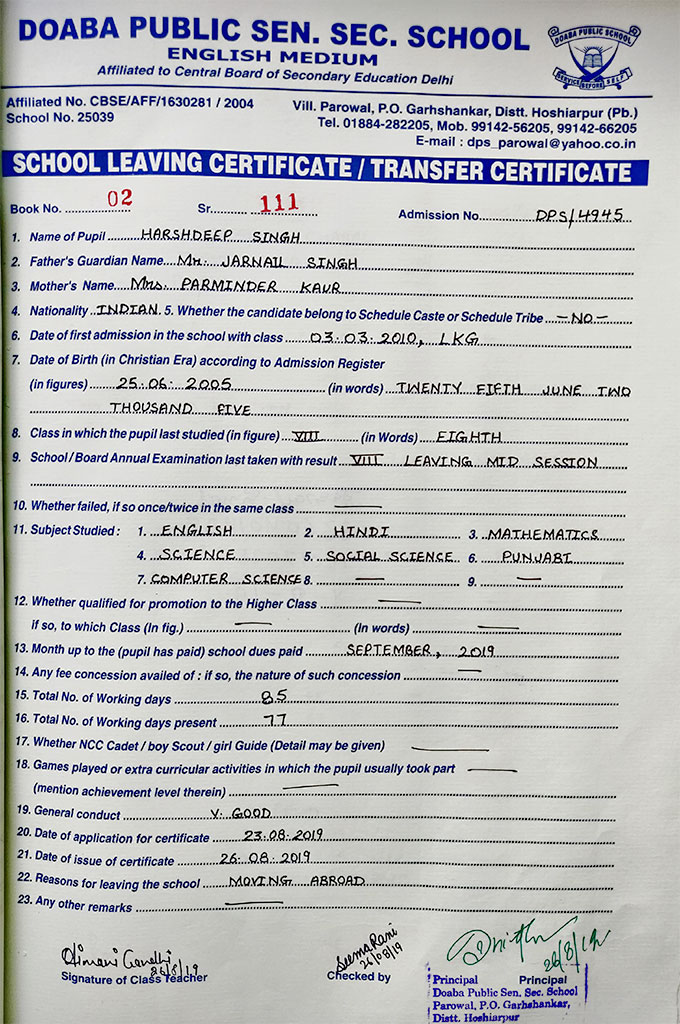 DOABA PUBLIC SEN. SEC. SCHOOL
ENGLISH MEDIUM
Affiliated to Central Board of Secondary Education Delhi
DOABA PUBLIC SCHOOL
SERVICE BEFORE SELF
Affiliated No. CBSE/AFF/1630281 / 2004
School No. 25039
Vill. Parowal, P.O. Garhshankar, Distt. Hoshiarpur (Pb.)
Tel. 01884-282205, Mob. 99142-56205, 99142-66205
E-mail : dps_parowal@yahoo.co.in
SCHOOL LEAVING CERTIFICATE / TRANSFER CERTIFICATE
Book No. 02 Sr. 111 Admission No. DPS/4945
1. Name of Pupil HARSHDEEP SINGH
2. Father's Guardian Name Mr. JARNAIL SINGH
3. Mother's Name Mrs. PARMINDER KAUR
4. Nationality INDIAN 5. Whether the candidate belong to Schedule Caste or Schedule Tribe —NO—
6. Date of first admission in the school with class 03.03.2010, LKG
7. Date of Birth (in Christian Era) according to Admission Register
(in figures) 25.06.2005 (in words) TWENTY FIFTH JUNE TWO
THOUSAND FIVE
8. Class in which the pupil last studied (in figure) VIII (in Words) EIGHTH
9. School / Board Annual Examination last taken with result VIII LEAVING MID SESSION
10. Whether failed, if so once/twice in the same class —
11. Subject Studied : 1. ENGLISH 2. HINDI 3. MATHEMATICS
4. SCIENCE 5. SOCIAL SCIENCE 6. PUNJABI
7. COMPUTER SCIENCE 8. — 9. —
12. Whether qualified for promotion to the Higher Class —
if so, to which Class (In fig.) — (In words) —
13. Month up to the (pupil has paid) school dues paid SEPTEMBER, 2019
14. Any fee concession availed of : if so, the nature of such concession —
15. Total No. of Working days 85
16. Total No. of Working days present 77
17. Whether NCC Cadet / boy Scout / girl Guide (Detail may be given) —
18. Games played or extra curricular activities in which the pupil usually took part —
(mention achievement level therein) —
19. General conduct V. GOOD
20. Date of application for certificate 23.08.2019
21. Date of issue of certificate 26.08.2019
22. Reasons for leaving the school MOVING ABROAD
23. Any other remarks —
Himani Gandhi 26/8/19
Signature of Class Teacher
Seema Rani 26/08/19
Checked by
26/8/19
Principal Principal
Doaba Public Sen. Sec. School
Parowal, P.O. Garhshankar,
Distt. Hoshiarpur